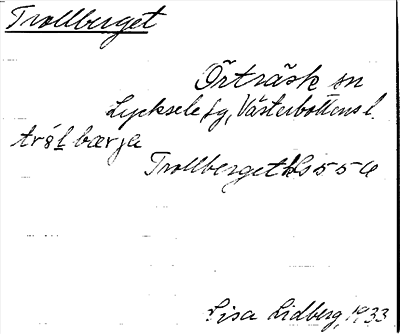 Trollberget
Örträsk sn
Lycksele lg, Västerbottens l.
trålbærja
Trollberget hs 556
Lisa Lidberg, 1933